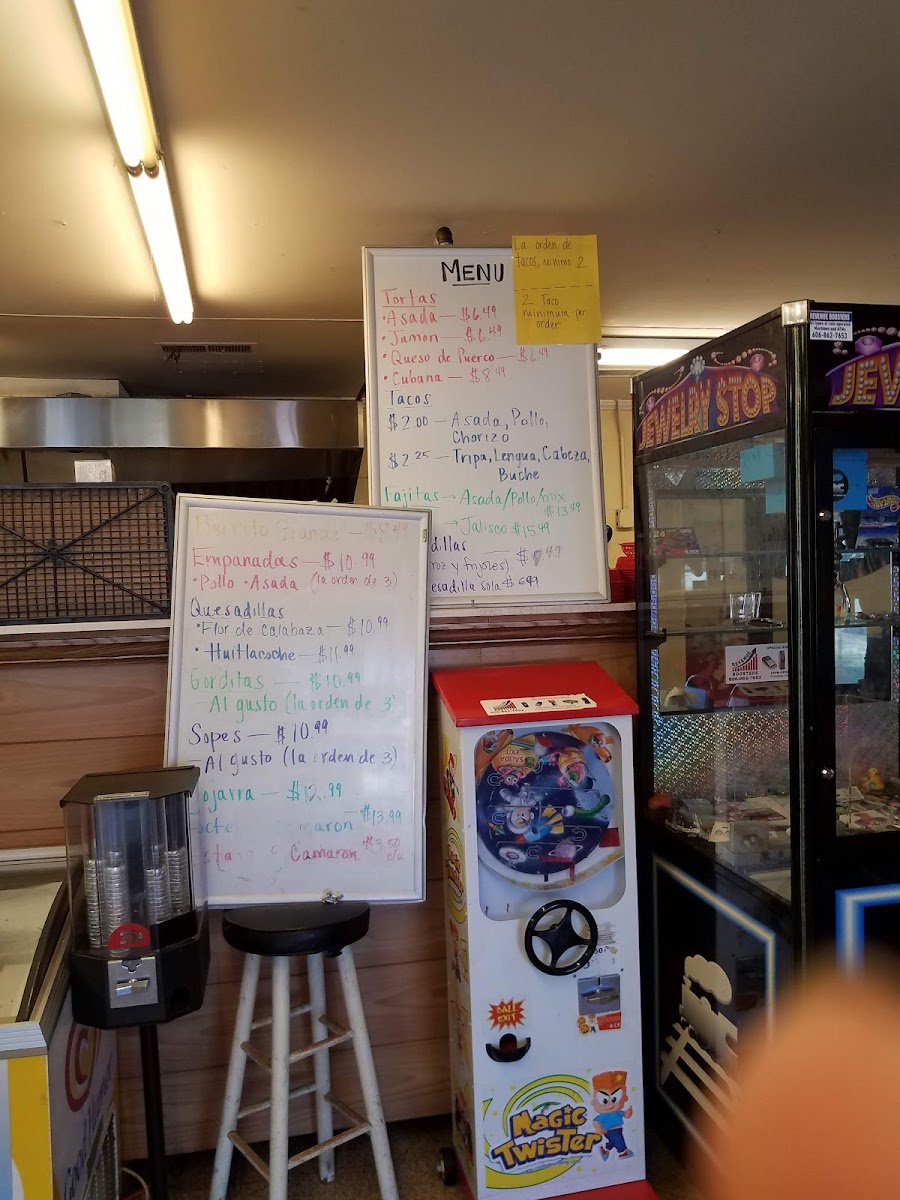 MENU
Tortas
• Asada — $6.49
• Jamon — $6.49
• Queso de Puerco — $6.49
• Cubana — $8.49
Tacos
$2.00 — Asada, Pollo,
Chorizo
$2.25 — Tripa, Lengua, Cabeza,
Buche
Fajitas → Asada/Pollo/mix
$13.49
→ Jalisco $15.49
dillas
roz y frijoles)
esadilla sola $6.49
La orden de
tacos, minimo 2
2 Taco
minimum per
order
Empanadas — $10.99
• Pollo • Asada (la orden de 3)
Quesadillas
• Flor de Calabaza — $10.99
• Huitlacoche — $11.99
Gorditas — $10.99
— Al gusto (la orden de 3)
Sopes — $10.99
— Al gusto (la orden de 3)
ojarra — $12.99
cte maron $13.99
sta Camaron $3.50
c/u
JEWELRY STOP
JEW
REVENUE BOOSTERS
606-862-7653
BOOSTERS
606-862-7653
SALIDA
EXIT
BALL
EXIT
MAGIC
TWISTER